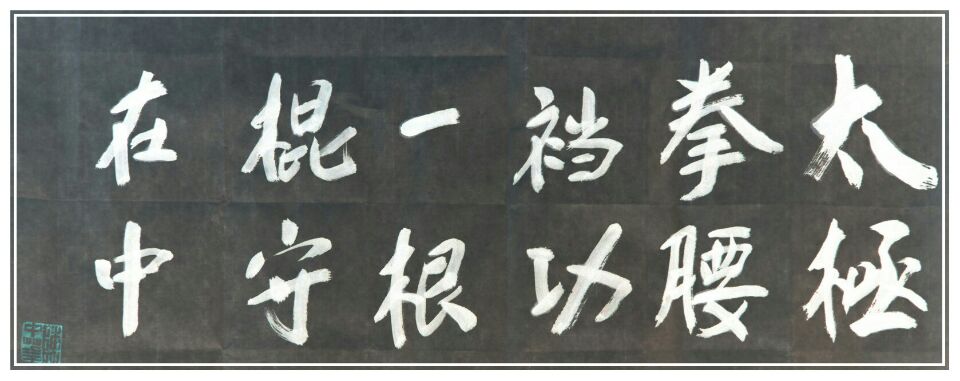 太極
拳腰
裆功
一根
棍守
在中